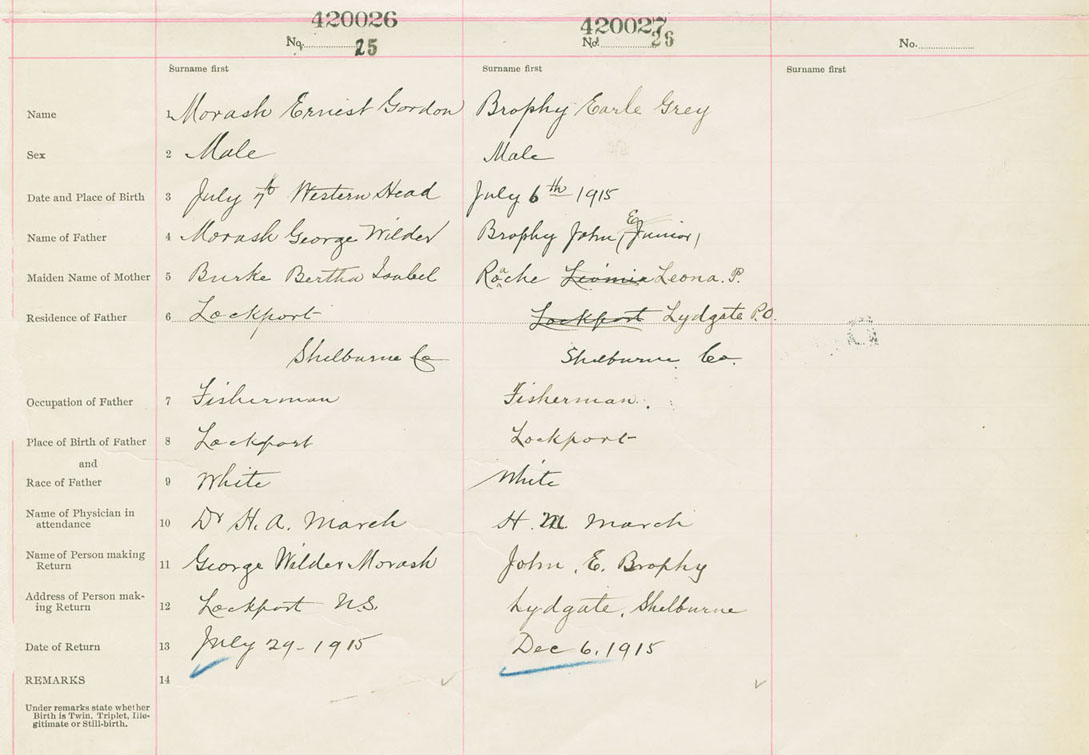 420026 420027
No. 25 No. 26 No.
Surname first Surname first Surname first
Name 1 Morash Ernest Gordon Brophy Earle Grey
Sex 2 Male Male
Date and Place of Birth 3 July 7th Western Head July 6th 1915
Name of Father 4 Morash George Wilder Brophy John E (Junior)
Maiden Name of Mother 5 Burke Bertha Isabel Roache Leona. P.
Residence of Father 6 Lockport Lockport Lydgate P.O.
Shelburne Co Shelburne Co.
Occupation of Father 7 Fisherman Fisherman.
Place of Birth of Father 8 Lockport Lockport
and
Race of Father 9 White White
Name of Physician in
attendance 10 Dr H. A. March H. M March
Name of Person making
Return 11 George Wilder Morash John. E. Brophy
Address of Person mak-
ing Return 12 Lockport N.S. Lydgate, Shelburne
Date of Return 13 July 29-1915 Dec 6, 1915
REMARKS 14
Under remarks state whether
Birth is Twin, Triplet, Ille-
gitimate or Still-birth.